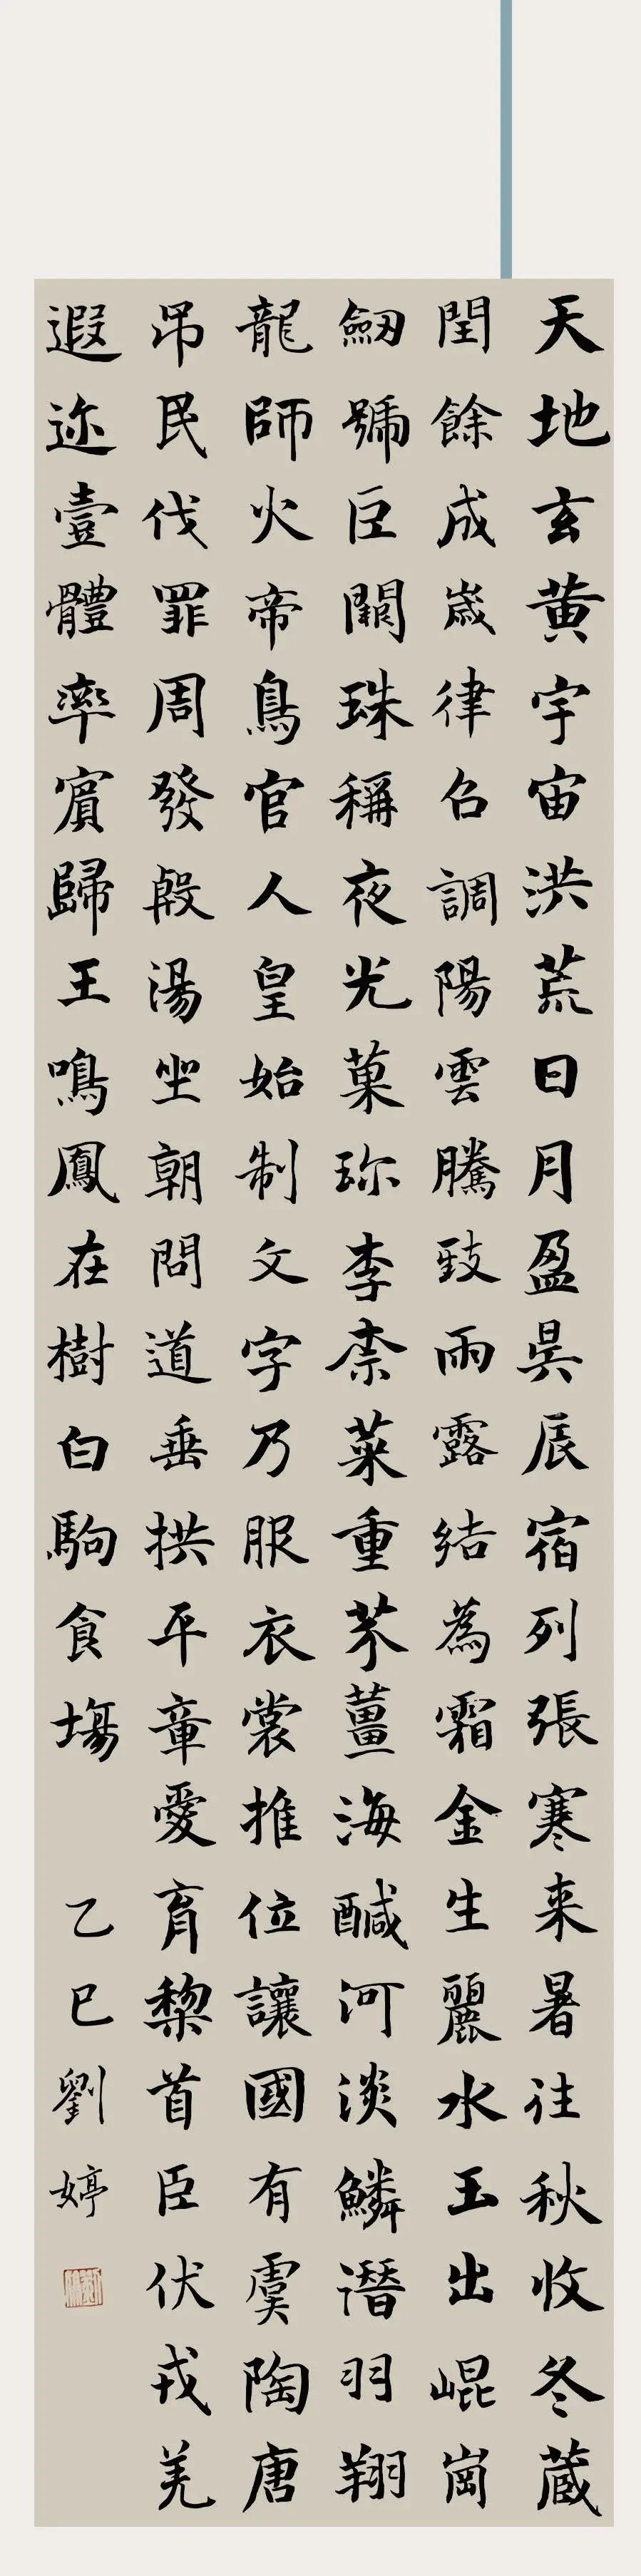 天地玄黄宇宙洪荒日月盈昃辰宿列張寒来暑往秋收冬藏
閏餘成歲律吕調陽雲騰致雨露結為霜金生麗水玉出崐崗
劒號巨闕珠稱夜光菓珎李柰菜重芥薑海醎河淡鱗潛羽翔
龍師火帝鳥官人皇始制文字乃服衣裳推位讓國有虞陶唐
吊民伐罪周發殷湯坐朝問道垂拱平章愛育黎首臣伏戎羌
遐迩壹體率賓歸王鳴鳳在樹白駒食場 乙巳劉婷